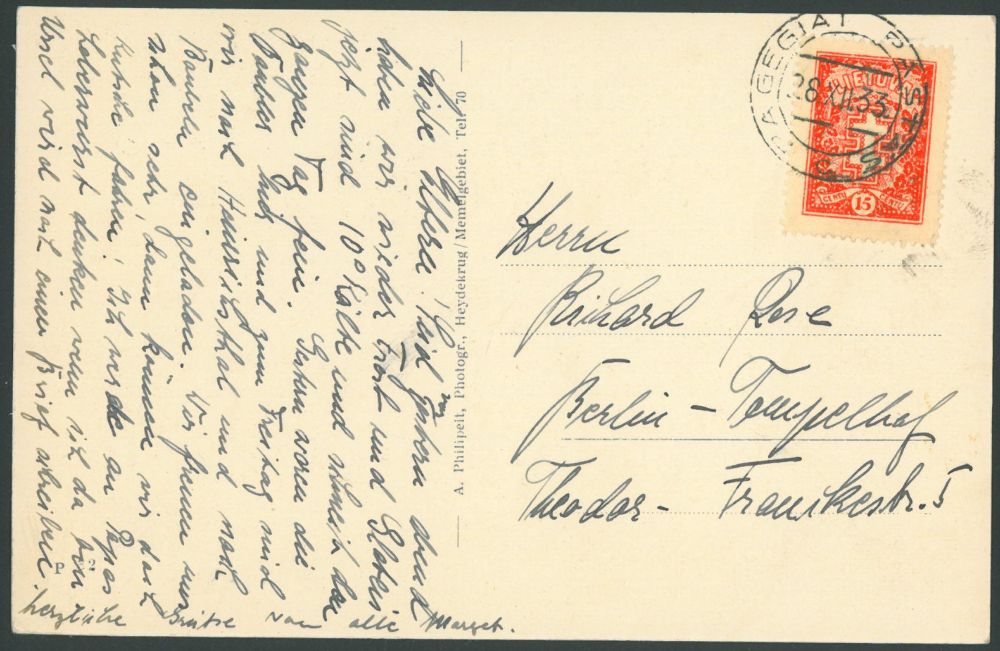 Liebe Eltern! Seid gestern abend
haben wir wieder Frost und Glatteis
jetzt sind 10° Kälte und schneit den
ganzen Tag fein. Gestern waren die
hier und zum Freitag sind
wir nach Heinrichsthal und nach
eingeladen. Wir freuen uns
schon sehr, dann können wir doch
Kutsche fahren. Ich werde an Papas
denken wenn ich da bin
Ursel wird noch einen Brief schreiben.
herzliche Grüße von alle Margot.
A. Philipeit, Photogr., Heydekrug/Memelgebiet, Tel. 70
P 2
PAGEGIAI
28 XII 33
LIETUVA
15
CENTŲ
Herrn
Richard Rose
Berlin - Tempelhof
Theodor- Franckestr. 5